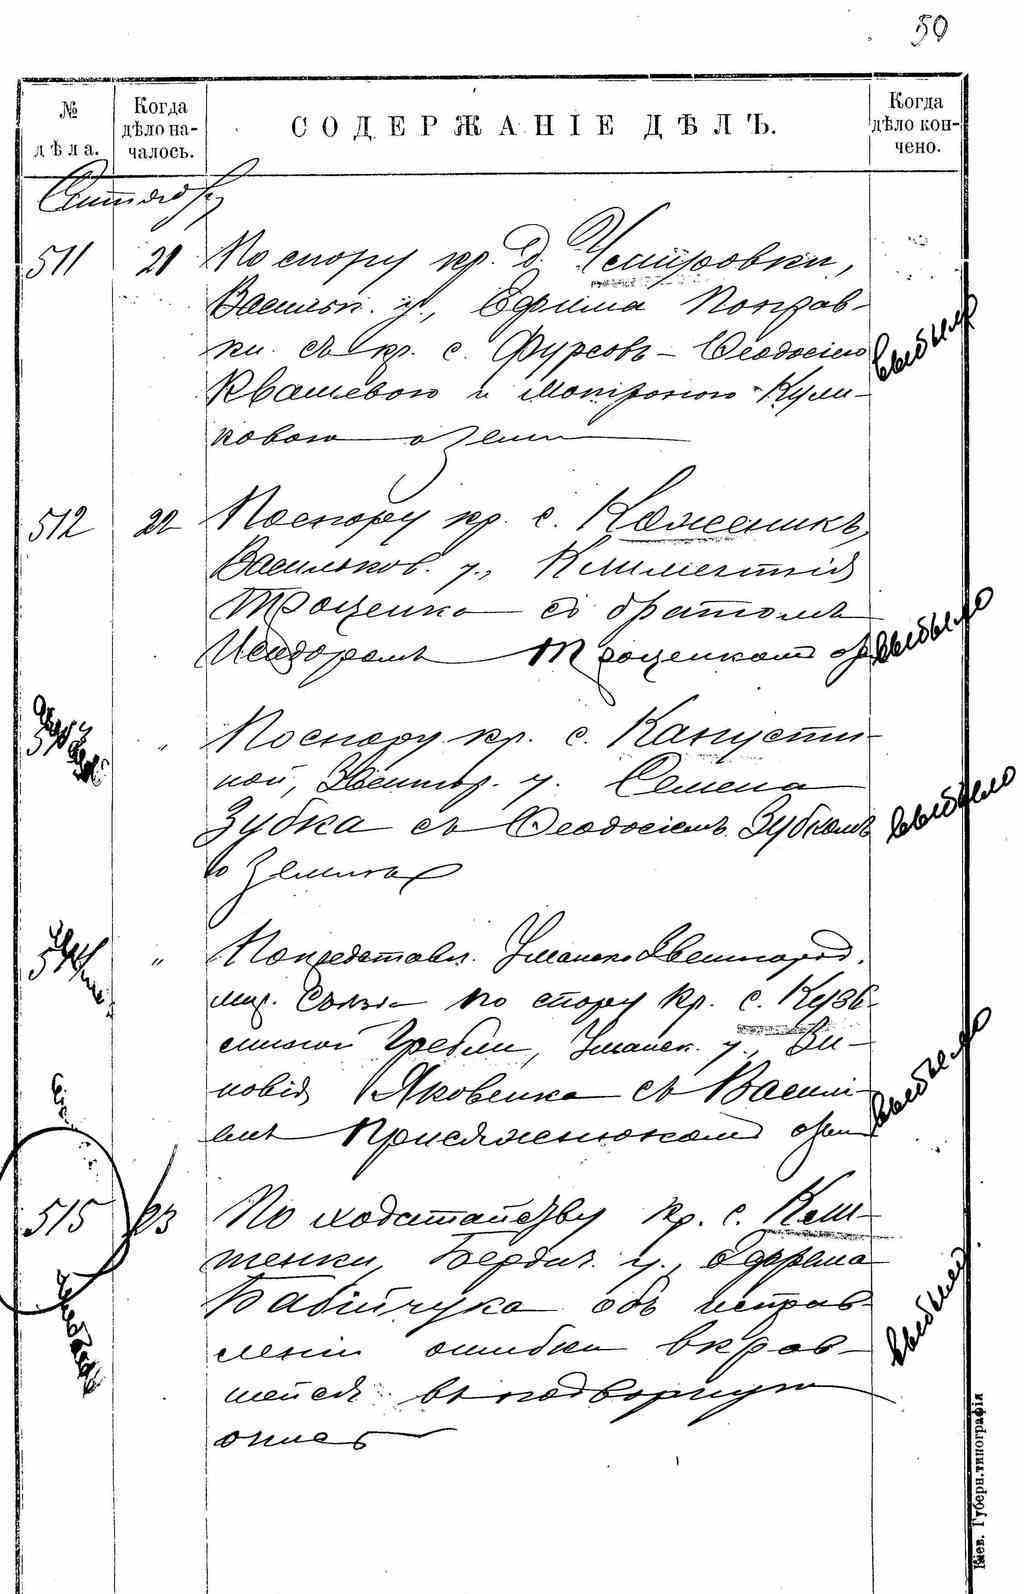 50
№ дѣла.
Когда дѣло началось.
СОДЕРЖАНІЕ ДѢЛЪ.
Когда дѣло кончено.
Сентября
511 21 По спору кр. д.
Васильк. у., Ефима Поправ-
ки съ кр. с. Фурсовъ - Ѳеодосіею
Квашевою и Мотроною Кули-
ковою о земл
выбыло
512 22 По спору кр. с. Кожаникъ,
Васильков. у., Климентія
Троценка съ братомъ
Исидоромъ Троценкомъ
выбыло
513 " По спору кр. с. Капусти-
ной, Звениг. у. Семена
Зубка съ Ѳеодосіемъ Зубкомъ
о земляхъ
выбыло
514 " По представл. Уманско Звенигород.
мир. Съѣзда по спору кр. с. Кузь-
миной Гребли, Уманск. у., Зи-
новія Яковенка съ Васили-
емъ Присяжнюкомъ о зем
выбыло
515 23 По ходатайству кр. с. Кли-
тенки, Бердич. у., Ефрема
Бабійчука объ исправ-
леніи ошибки вкрав-
шейся въ подворную
опись
выбыло
Кіев. Губерн. типографія